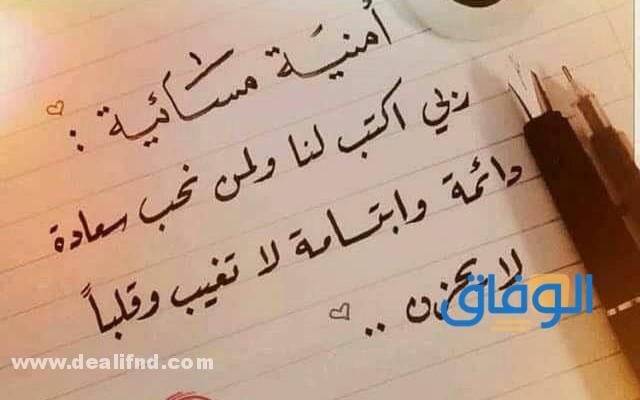 أمنية مسائية :
ربي اكتب لنا ولمن نحب سعادة
دائمة وابتسامة لا تغيب وقلباً
لا يحزن ..
الوفاق
www.dealifnd.com